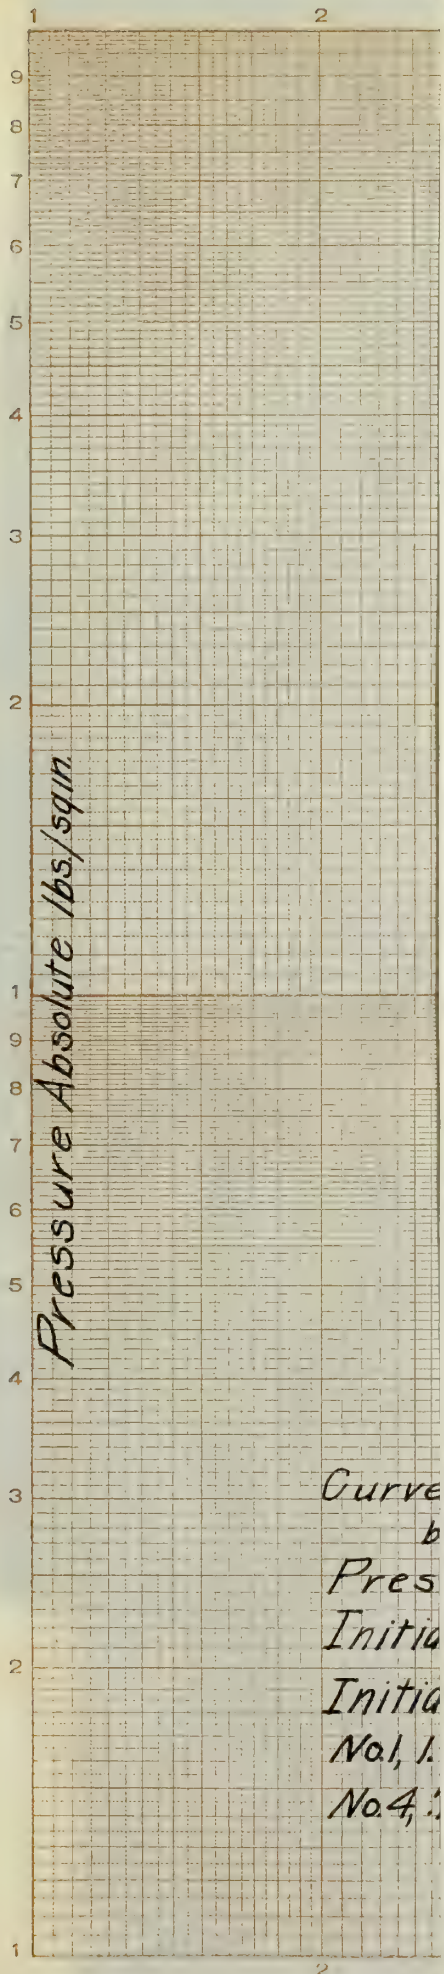 1 2
9
8
7
6
5
4
3
2
1
9
8
7
6
5
4
3
2
1
2
Pressure Absolute lbs./sq.in.
Curve
b
Pres
Initia
Initia
No.1, 1.
No.4,